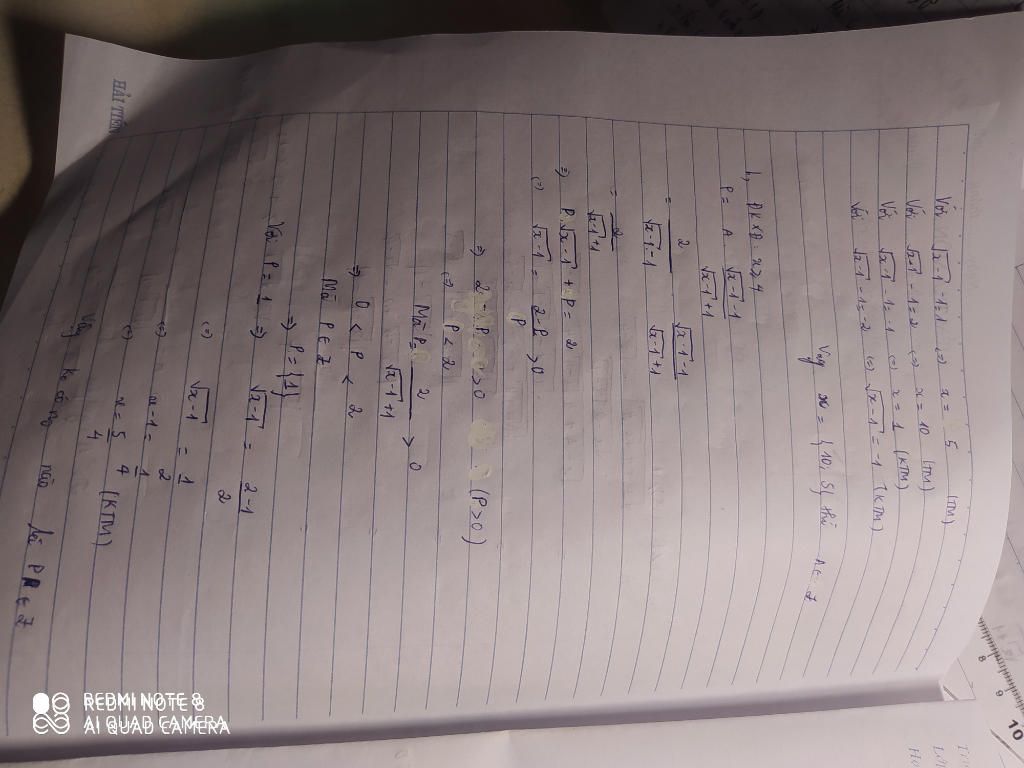 Với √x-1 -1=1 (=) x = 5 (TM)
Với √x-1 -1=2 (=) x = 10 (TM)
Với √x-1 -1=-1 (=) x = 1 (KTM)
Với √x-1 -1=-2 (=) √x-1 = -1 (KTM)
Vậy x = {10, 5} thì A ∈ Z
b, ĐKXĐ: x ≥ 4
P = A . √x-1 -1 / √x-1 +1
= 2 / √x-1 -1 . √x-1 -1 / √x-1 +1
= 2 / √x-1 +1
=) P.√x-1 + P = 2
(=) √x-1 = 2-P / P > 0
=) 2 - P > 0 (P>0)
(=) P < 2
Mà P = 2 / √x-1 +1 > 0
=) 0 < P < 2
Mà P ∈ Z
=) P = {1}
Với P = 1 =) √x-1 = 2-1 / 2
(=) √x-1 = 1 / 2
(=) x-1 = 1 / 4
(=) x = 5 / 4 (KTM)
Vậy ko có no nào để P ∈ Z
HẢI TIẾN
8
9
10
REDMI NOTE 8
AI QUAD CAMERA